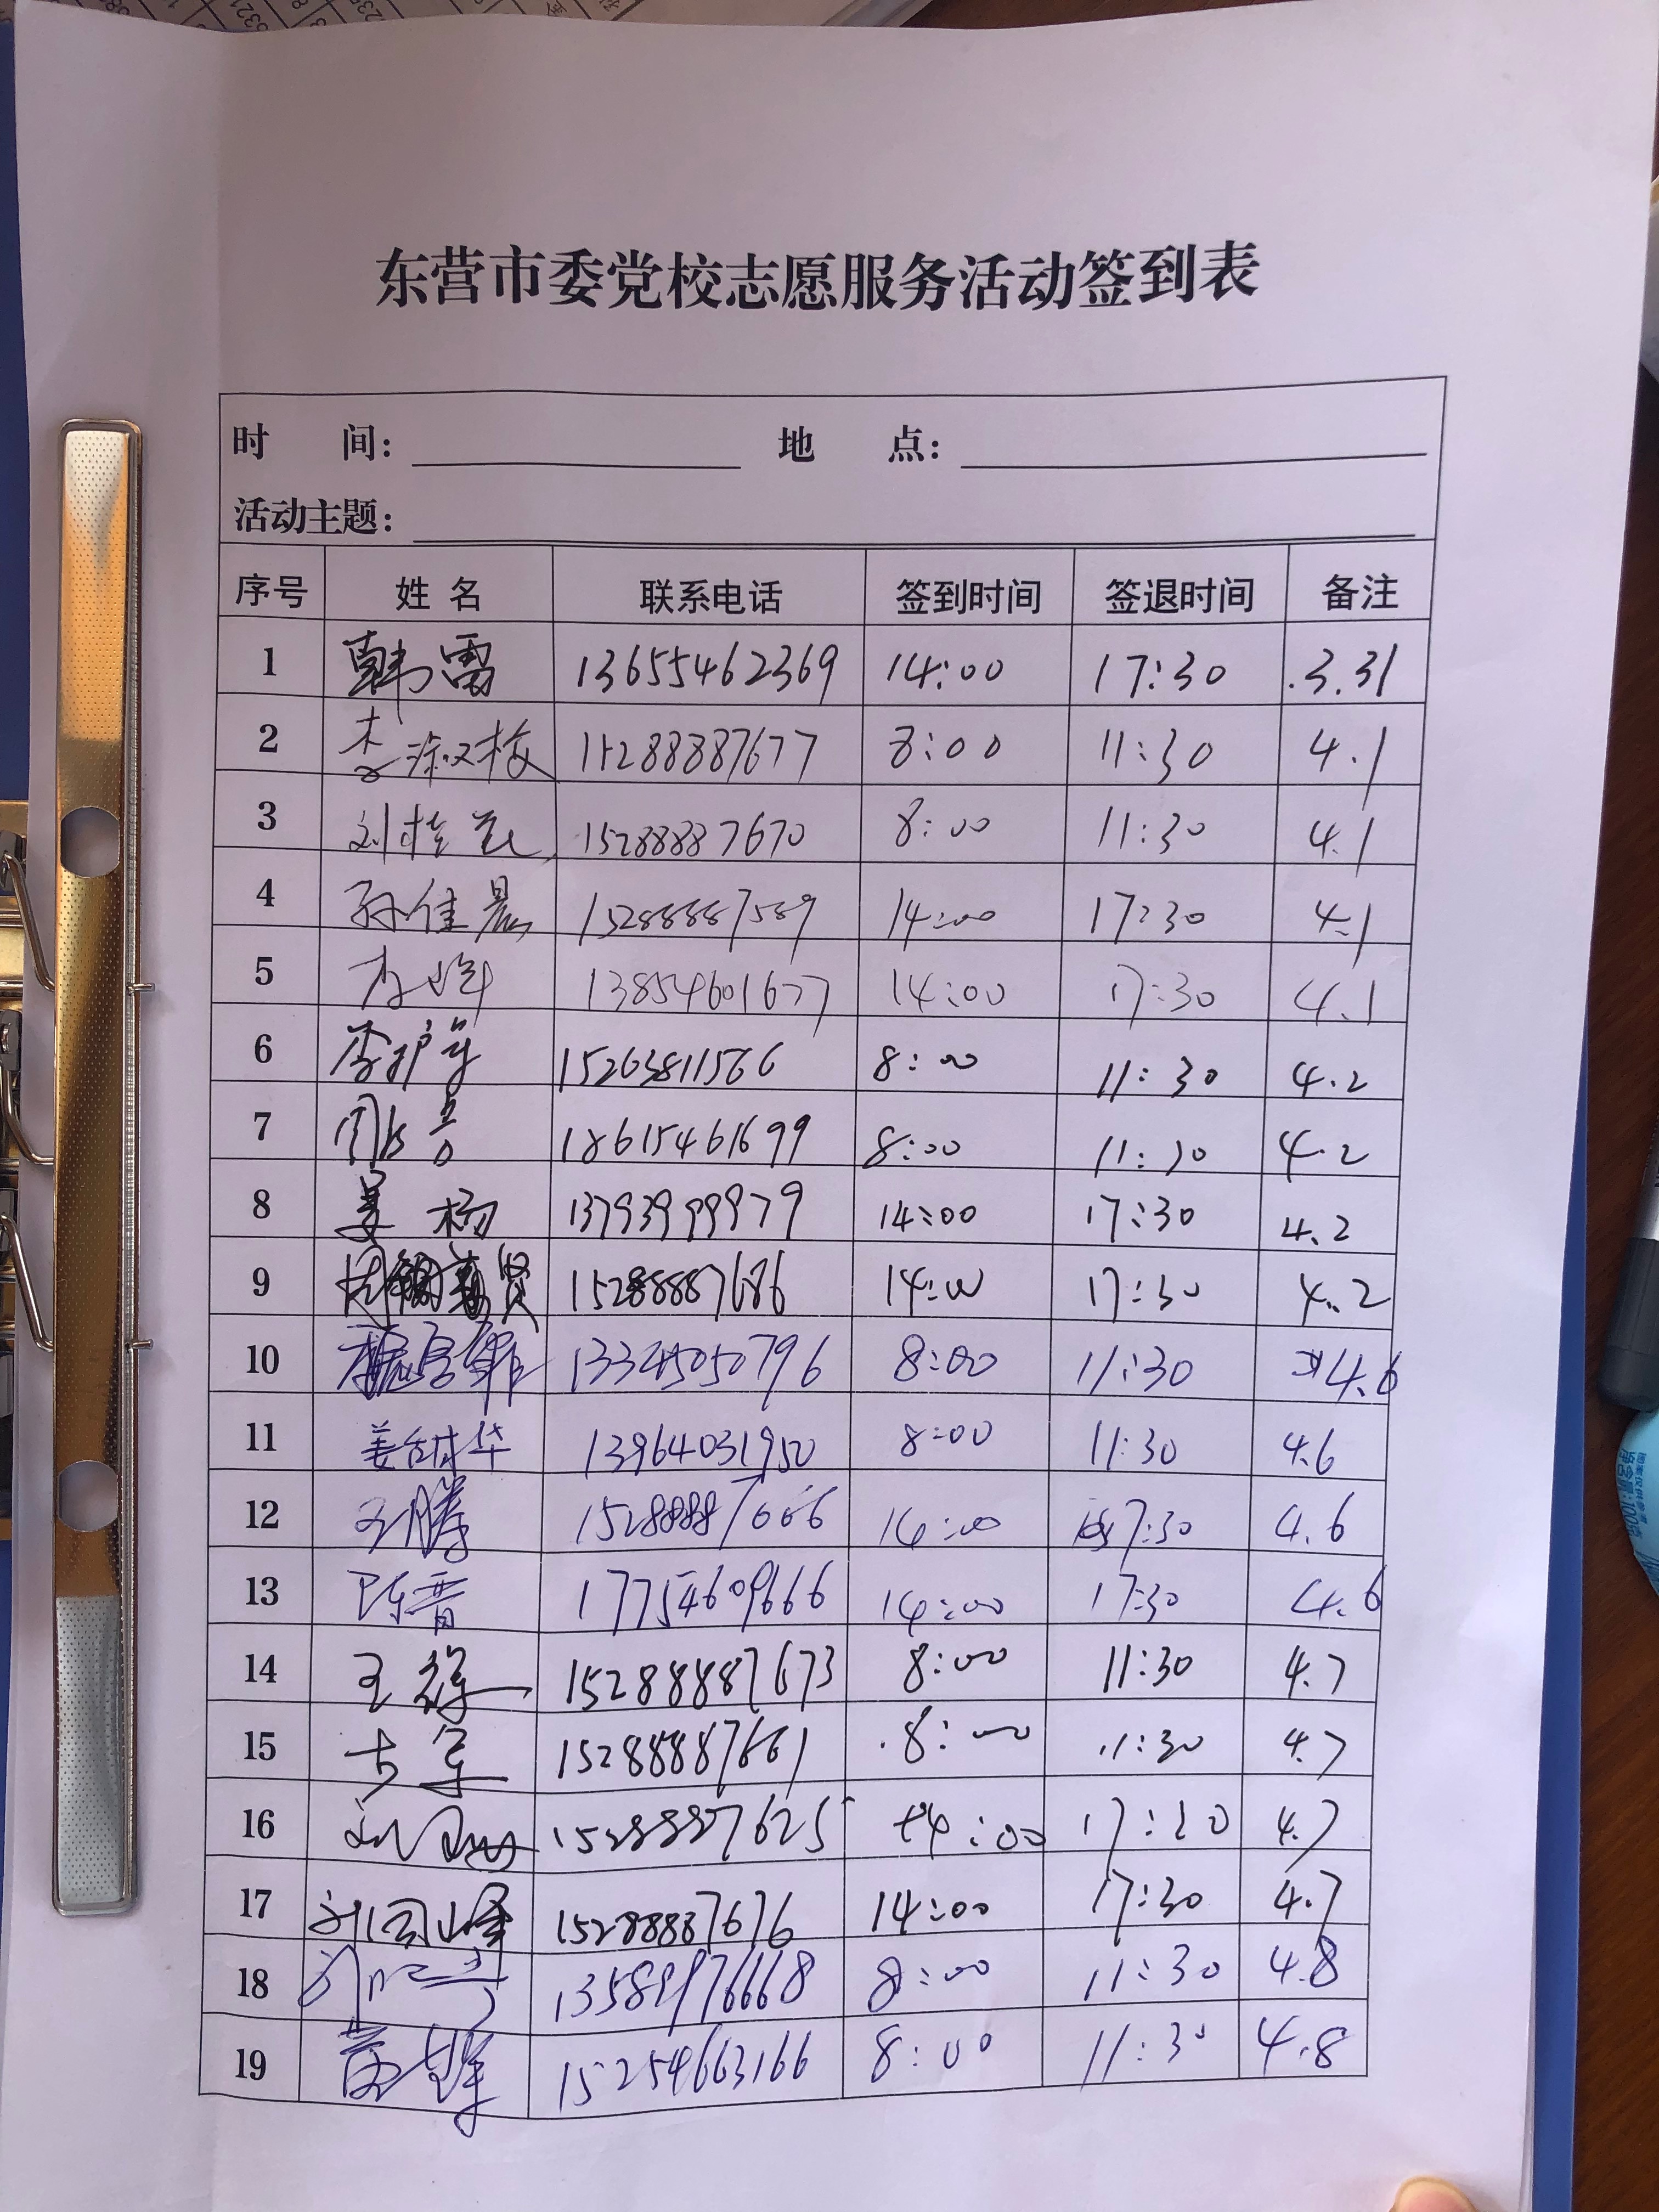 东营市委党校志愿服务活动签到表
时 间: 地 点:
活动主题:
序号 姓名 联系电话 签到时间 签退时间 备注
1 韩雷 13655462369 14:00 17:30 3.31
2 李淑梅 15288887677 8:00 11:30 4.1
3 15288887670 8:00 11:30 4.1
4 孙佳晨 15288887589 14:00 17:30 4.1
5 13854601677 14:00 17:30 4.1
6 15263811566 8:00 11:30 4.2
7 18615461699 8:00 11:30 4.2
8 姜杨 13793999979 14:00 17:30 4.2
9 15288887686 14:00 17:30 4.2
10 13345050796 8:00 11:30 4.6
11 13964031950 8:00 11:30 4.6
12 王腾 15288887666 14:00 17:30 4.6
13 陈晋 17754609666 14:00 17:30 4.6
14 15288887673 8:00 11:30 4.7
15 15288887661 8:00 11:30 4.7
16 15288887625 14:00 17:30 4.7
17 15288887676 14:00 17:30 4.7
18 13589976668 8:00 11:30 4.8
19 15254663166 8:00 11:30 4.8